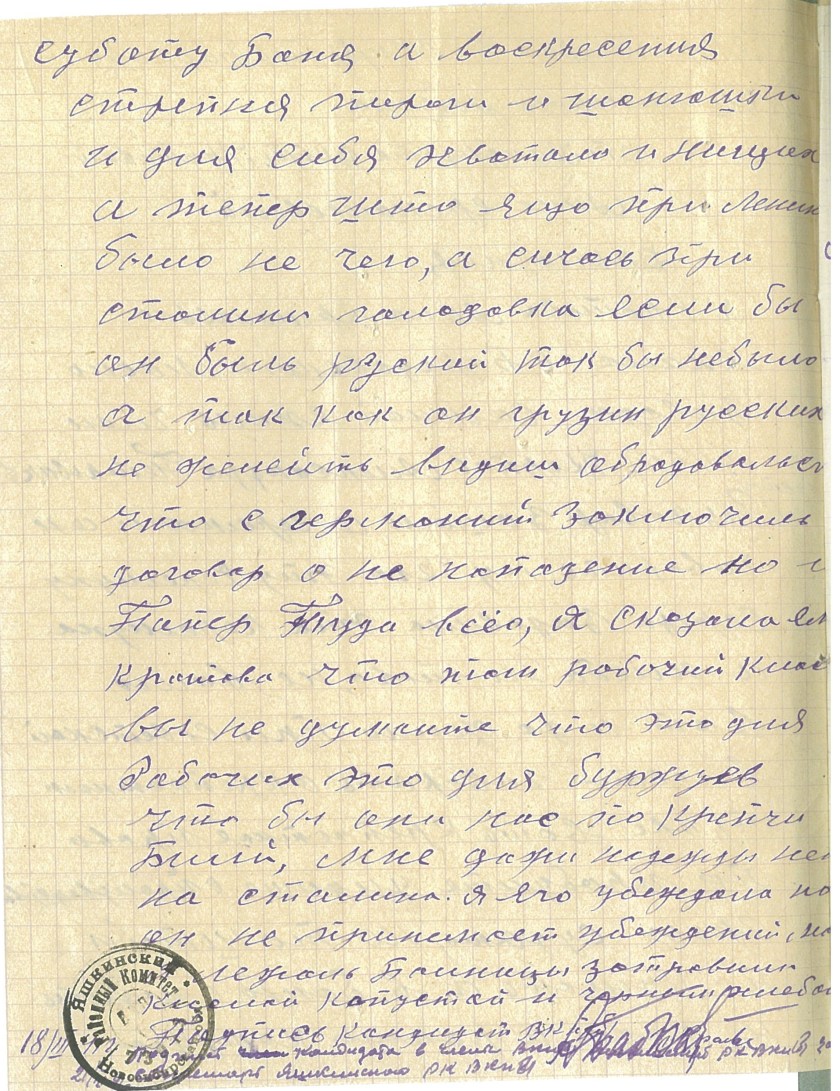 суботу Баня а воскресения
стрепня пироги и шанюшки
и для сибя хватало и нищих
а тепер што ящо при Ленин
было не чего, а сичась при
сталини галодовка если бы
он быль руский так бы небыло
а так как он грузин русских
не жилеить видиш обрадовалься
что с германий заключиль
договар о не нападение но и
Тапер Труда всёо, я сказала ем
кратова что там рабочий клас
вы не думаите что это для
Рабочих это для буржуев
что бы они нас по крепчи
Били, мне дажи надежды нет
на сталина. я его убеждала но
он не принимает убеждений, на
лежаль Больницы затравили
кислой капустой и черним хлебом
Подпись кандидат ВКПб
18/III
Подпись кандидата в члены ВКПб
Яшкинского РК ВКП(б)
Яшкинский
Районный Комитет
Новосибирск